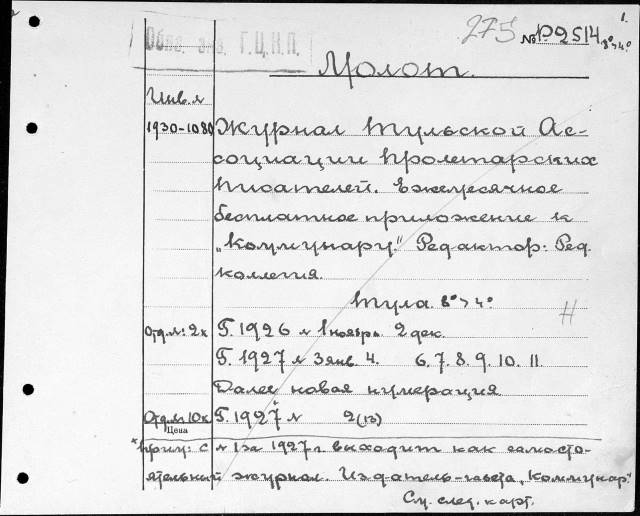 1.
275 № P2514 8°>4°
Обяз. экз. Г.Ц.К.П.
Молот.
Инв. №
1930-1080 Журнал Тульской Ас-
социации пролетарских
писателей. Ежемесячное
бесплатное приложение к
„Коммунару." Редактор: Ред.
коллегия.
Тула. 8°>4°
Н
Отд. №: 2к Г. 1926 № 1 ноябрь 2 дек.
Г. 1927 № 3 янв. 4. 6. 7. 8. 9. 10. 11.
Далее новая нумерация
Отд. № 10к Г. 1927 № 2(13)
Цена
*Прим: с № 1 за 1927 г выходит как самосто-
ятельный журнал. Издатель-газета „Коммунар"
См. след. карт.